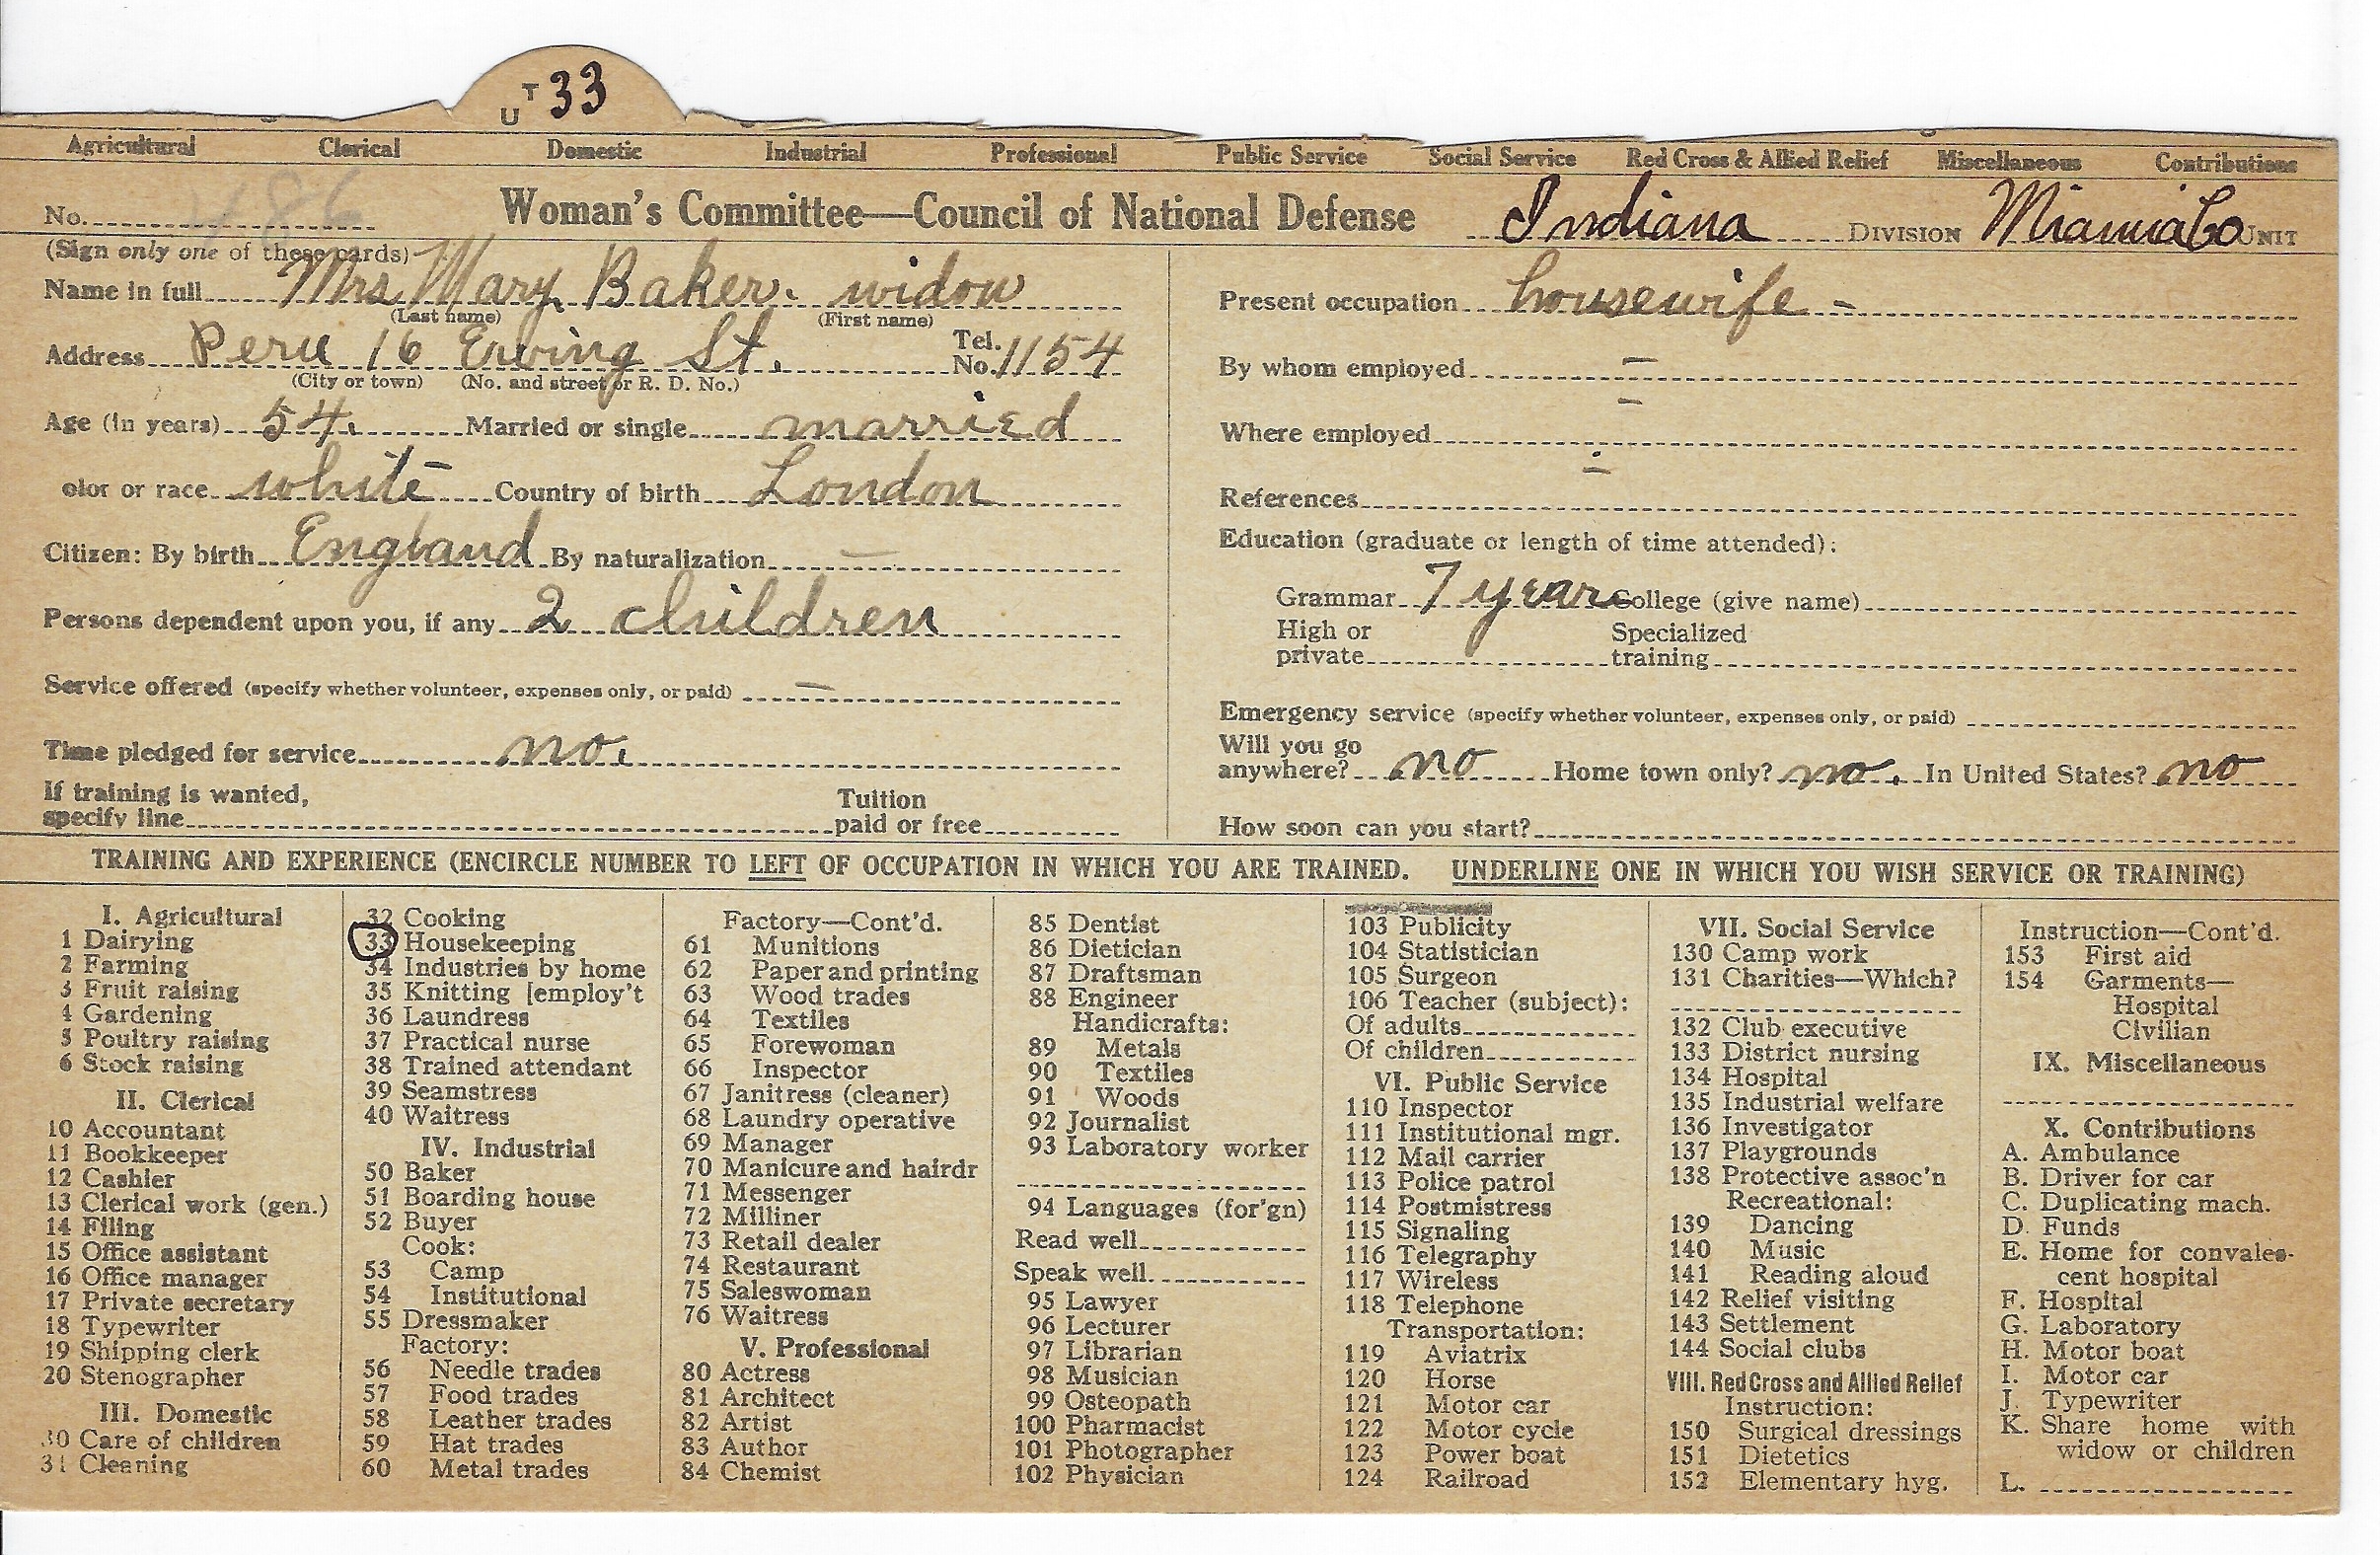 U T 33
Agricultural Clerical Domestic Industrial Professional Public Service Social Service Red Cross & Allied Relief Miscellaneous Contributions
No. 486 Woman's Committee—Council of National Defense Indiana DIVISION Miami Co UNIT
(Sign only one of these cards)
Name in full Mrs Mary Baker. widow
(Last name) (First name)
Address Peru 16 Erving St. Tel. No. 1154
(City or town) (No. and street or R. D. No.)
Age (in years) 54. Married or single married
olor or race white Country of birth London
Citizen: By birth England By naturalization —
Persons dependent upon you, if any 2 children
Service offered (specify whether volunteer, expenses only, or paid) —
Time pledged for service no.
If training is wanted,
specify line Tuition
paid or free
Present occupation housewife -
By whom employed —
Where employed —
References —
Education (graduate or length of time attended):
Grammar 7 year College (give name)
High or
private Specialized
training
Emergency service (specify whether volunteer, expenses only, or paid)
Will you go
anywhere? no Home town only? no. In United States? no
How soon can you start?
TRAINING AND EXPERIENCE (ENCIRCLE NUMBER TO LEFT OF OCCUPATION IN WHICH YOU ARE TRAINED. UNDERLINE ONE IN WHICH YOU WISH SERVICE OR TRAINING)
I. Agricultural
1 Dairying
2 Farming
3 Fruit raising
4 Gardening
5 Poultry raising
6 Stock raising
II. Clerical
10 Accountant
11 Bookkeeper
12 Cashier
13 Clerical work (gen.)
14 Filing
15 Office assistant
16 Office manager
17 Private secretary
18 Typewriter
19 Shipping clerk
20 Stenographer
III. Domestic
30 Care of children
31 Cleaning
32 Cooking
33 Housekeeping
34 Industries by home
35 Knitting [employ't
36 Laundress
37 Practical nurse
38 Trained attendant
39 Seamstress
40 Waitress
IV. Industrial
50 Baker
51 Boarding house
52 Buyer
Cook:
53 Camp
54 Institutional
55 Dressmaker
Factory:
56 Needle trades
57 Food trades
58 Leather trades
59 Hat trades
60 Metal trades
Factory—Cont'd.
61 Munitions
62 Paper and printing
63 Wood trades
64 Textiles
65 Forewoman
66 Inspector
67 Janitress (cleaner)
68 Laundry operative
69 Manager
70 Manicure and hairdr
71 Messenger
72 Milliner
73 Retail dealer
74 Restaurant
75 Saleswoman
76 Waitress
V. Professional
80 Actress
81 Architect
82 Artist
83 Author
84 Chemist
85 Dentist
86 Dietician
87 Draftsman
88 Engineer
Handicrafts:
89 Metals
90 Textiles
91 Woods
92 Journalist
93 Laboratory worker
94 Languages (for'gn)
Read well
Speak well
95 Lawyer
96 Lecturer
97 Librarian
98 Musician
99 Osteopath
100 Pharmacist
101 Photographer
102 Physician
103 Publicity
104 Statistician
105 Surgeon
106 Teacher (subject):
Of adults
Of children
VI. Public Service
110 Inspector
111 Institutional mgr.
112 Mail carrier
113 Police patrol
114 Postmistress
115 Signaling
116 Telegraphy
117 Wireless
118 Telephone
Transportation:
119 Aviatrix
120 Horse
121 Motor car
122 Motor cycle
123 Power boat
124 Railroad
VII. Social Service
130 Camp work
131 Charities—Which?
132 Club executive
133 District nursing
134 Hospital
135 Industrial welfare
136 Investigator
137 Playgrounds
138 Protective assoc'n
Recreational:
139 Dancing
140 Music
141 Reading aloud
142 Relief visiting
143 Settlement
144 Social clubs
VIII. Red Cross and Allied Relief
Instruction:
150 Surgical dressings
151 Dietetics
152 Elementary hyg.
Instruction—Cont'd.
153 First aid
154 Garments—
Hospital
Civilian
IX. Miscellaneous
X. Contributions
A. Ambulance
B. Driver for car
C. Duplicating mach.
D. Funds
E. Home for convales-
cent hospital
F. Hospital
G. Laboratory
H. Motor boat
I. Motor car
J. Typewriter
K. Share home with
widow or children
L.